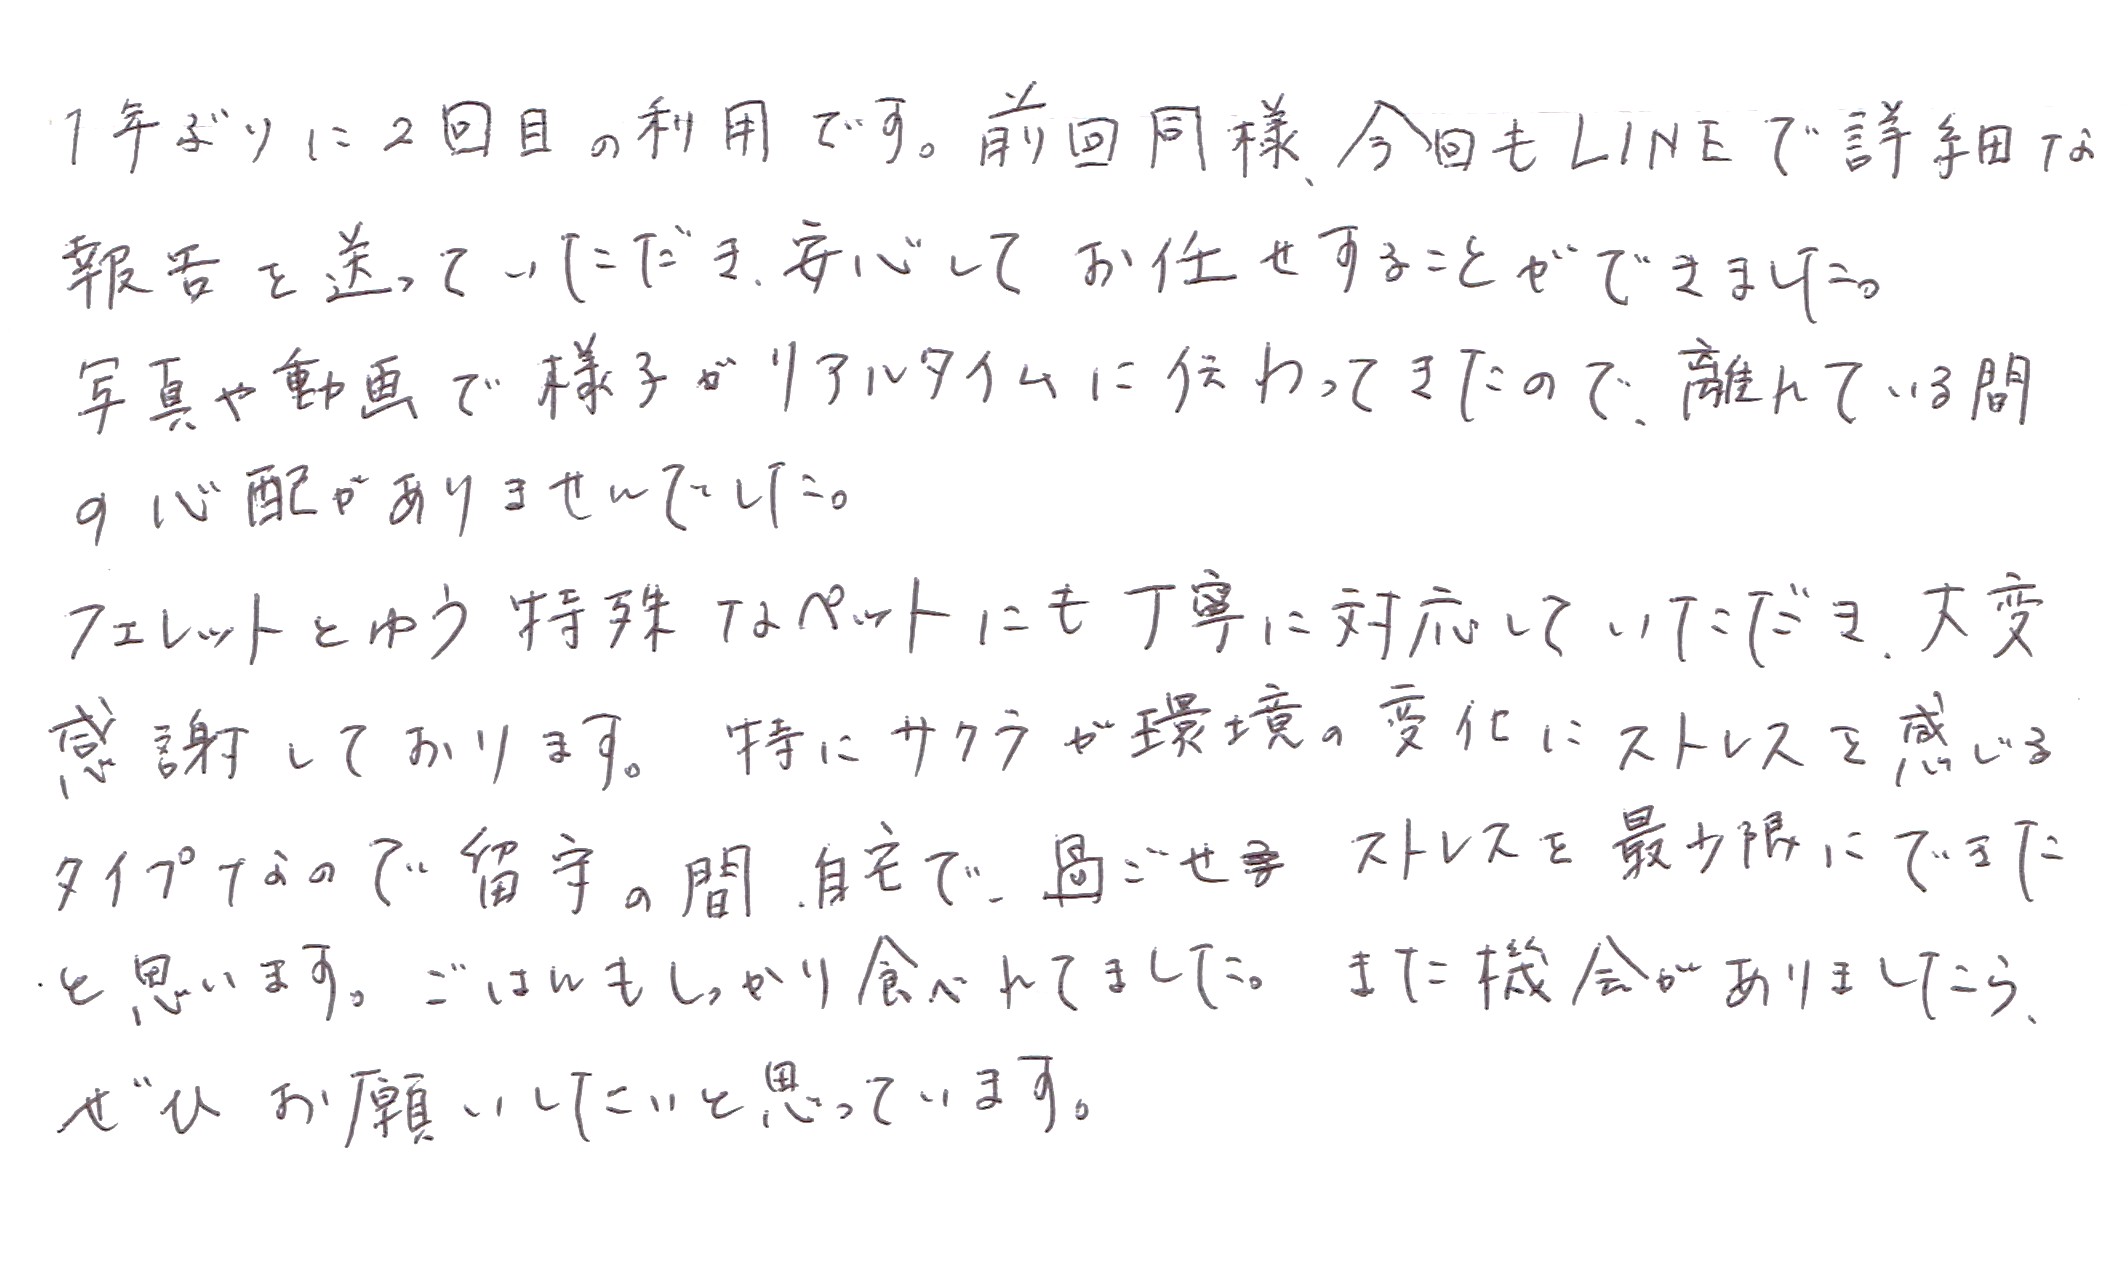 1年ぶりに2回目の利用です。前回同様、今回もLINEで詳細な
報告を送っていただき、安心してお任せすることができました。
写真や動画で様子がリアルタイムに伝わってきたので、離れている間
の心配がありませんでした。
フェレットとゆう特殊なペットにも丁寧に対応していただき、大変
感謝しております。特にサクラが環境の変化にストレスを感じる
タイプなので留守の間、自宅で、過ごせ ストレスを最少限にできた
と思います。ごはんもしっかり食べれてました。また機会がありましたら、
ぜひお願いしたいと思っています。